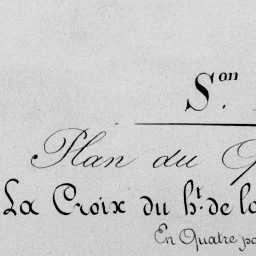 S.on
Plan du
La Croix du ht. de la
En Quatre